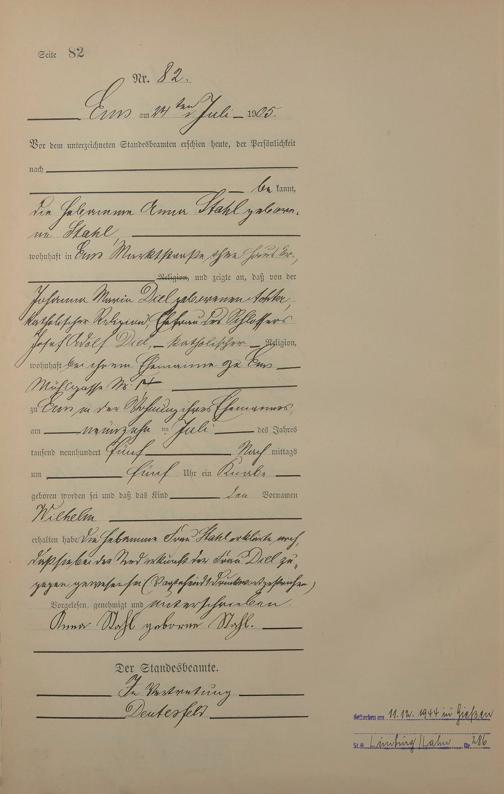 Seite 82
Nr. 82.
Ems am 24ten Juli 1905.
Vor dem unterzeichneten Standesbeamten erschien heute, der Persönlichkeit
nach
be kannt,
die Hebamme Anna Stahl gebore-
ne Stahl,
wohnhaft in Ems Marktstraße, ohne Haus Nr.,
Religion, und zeigte an, daß von der
Johanna Maria Diel geborenen
katholischer Religion, Ehefrau des Schlossers
Josef Adolf Diel, katholischer Religion,
wohnhaft bei ihrem Ehemanne zu Ems
Mühlgasse Nr.
zu Ems in der Wohnung ihres Ehemannes,
am neunzehn ten Juli des Jahres
tausend neunhundert fünf Nach mittags
um fünf Uhr ein Knabe
geboren worden sei und daß das Kind den Vornamen
Wilhelm
erhalten habe. Die Hebamme Frau Stahl erklärte noch,
daß sie bei der Niederkunft der Frau Diel zu-
gegen gewesen sei.
Vorgelesen, genehmigt und unterschrieben
Anna Stahl geborne Stahl.
Der Standesbeamte.
In Vertretung
Gestorben am 11.12.1944 in Gießen
St.A. Limburg/Lahn Nr. 286